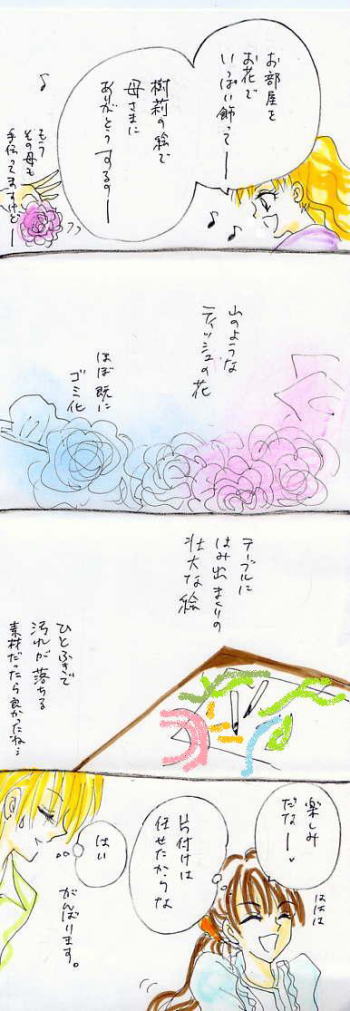 お部屋を
お花で
いっぱい飾ってー
樹莉の絵で
母さまに
ありがとうするのー
もう
その母も
手伝ってますけどー
山のような
ティッシュの花
ほぼ既に
ゴミ化
テーブルに
はみ出まくりの
壮大な絵
ひとふきで
汚れが落ちる
素材だったら良かったね…
楽しみ
だなー
ははは
片付けは
任せたからな
はい
がんばります。